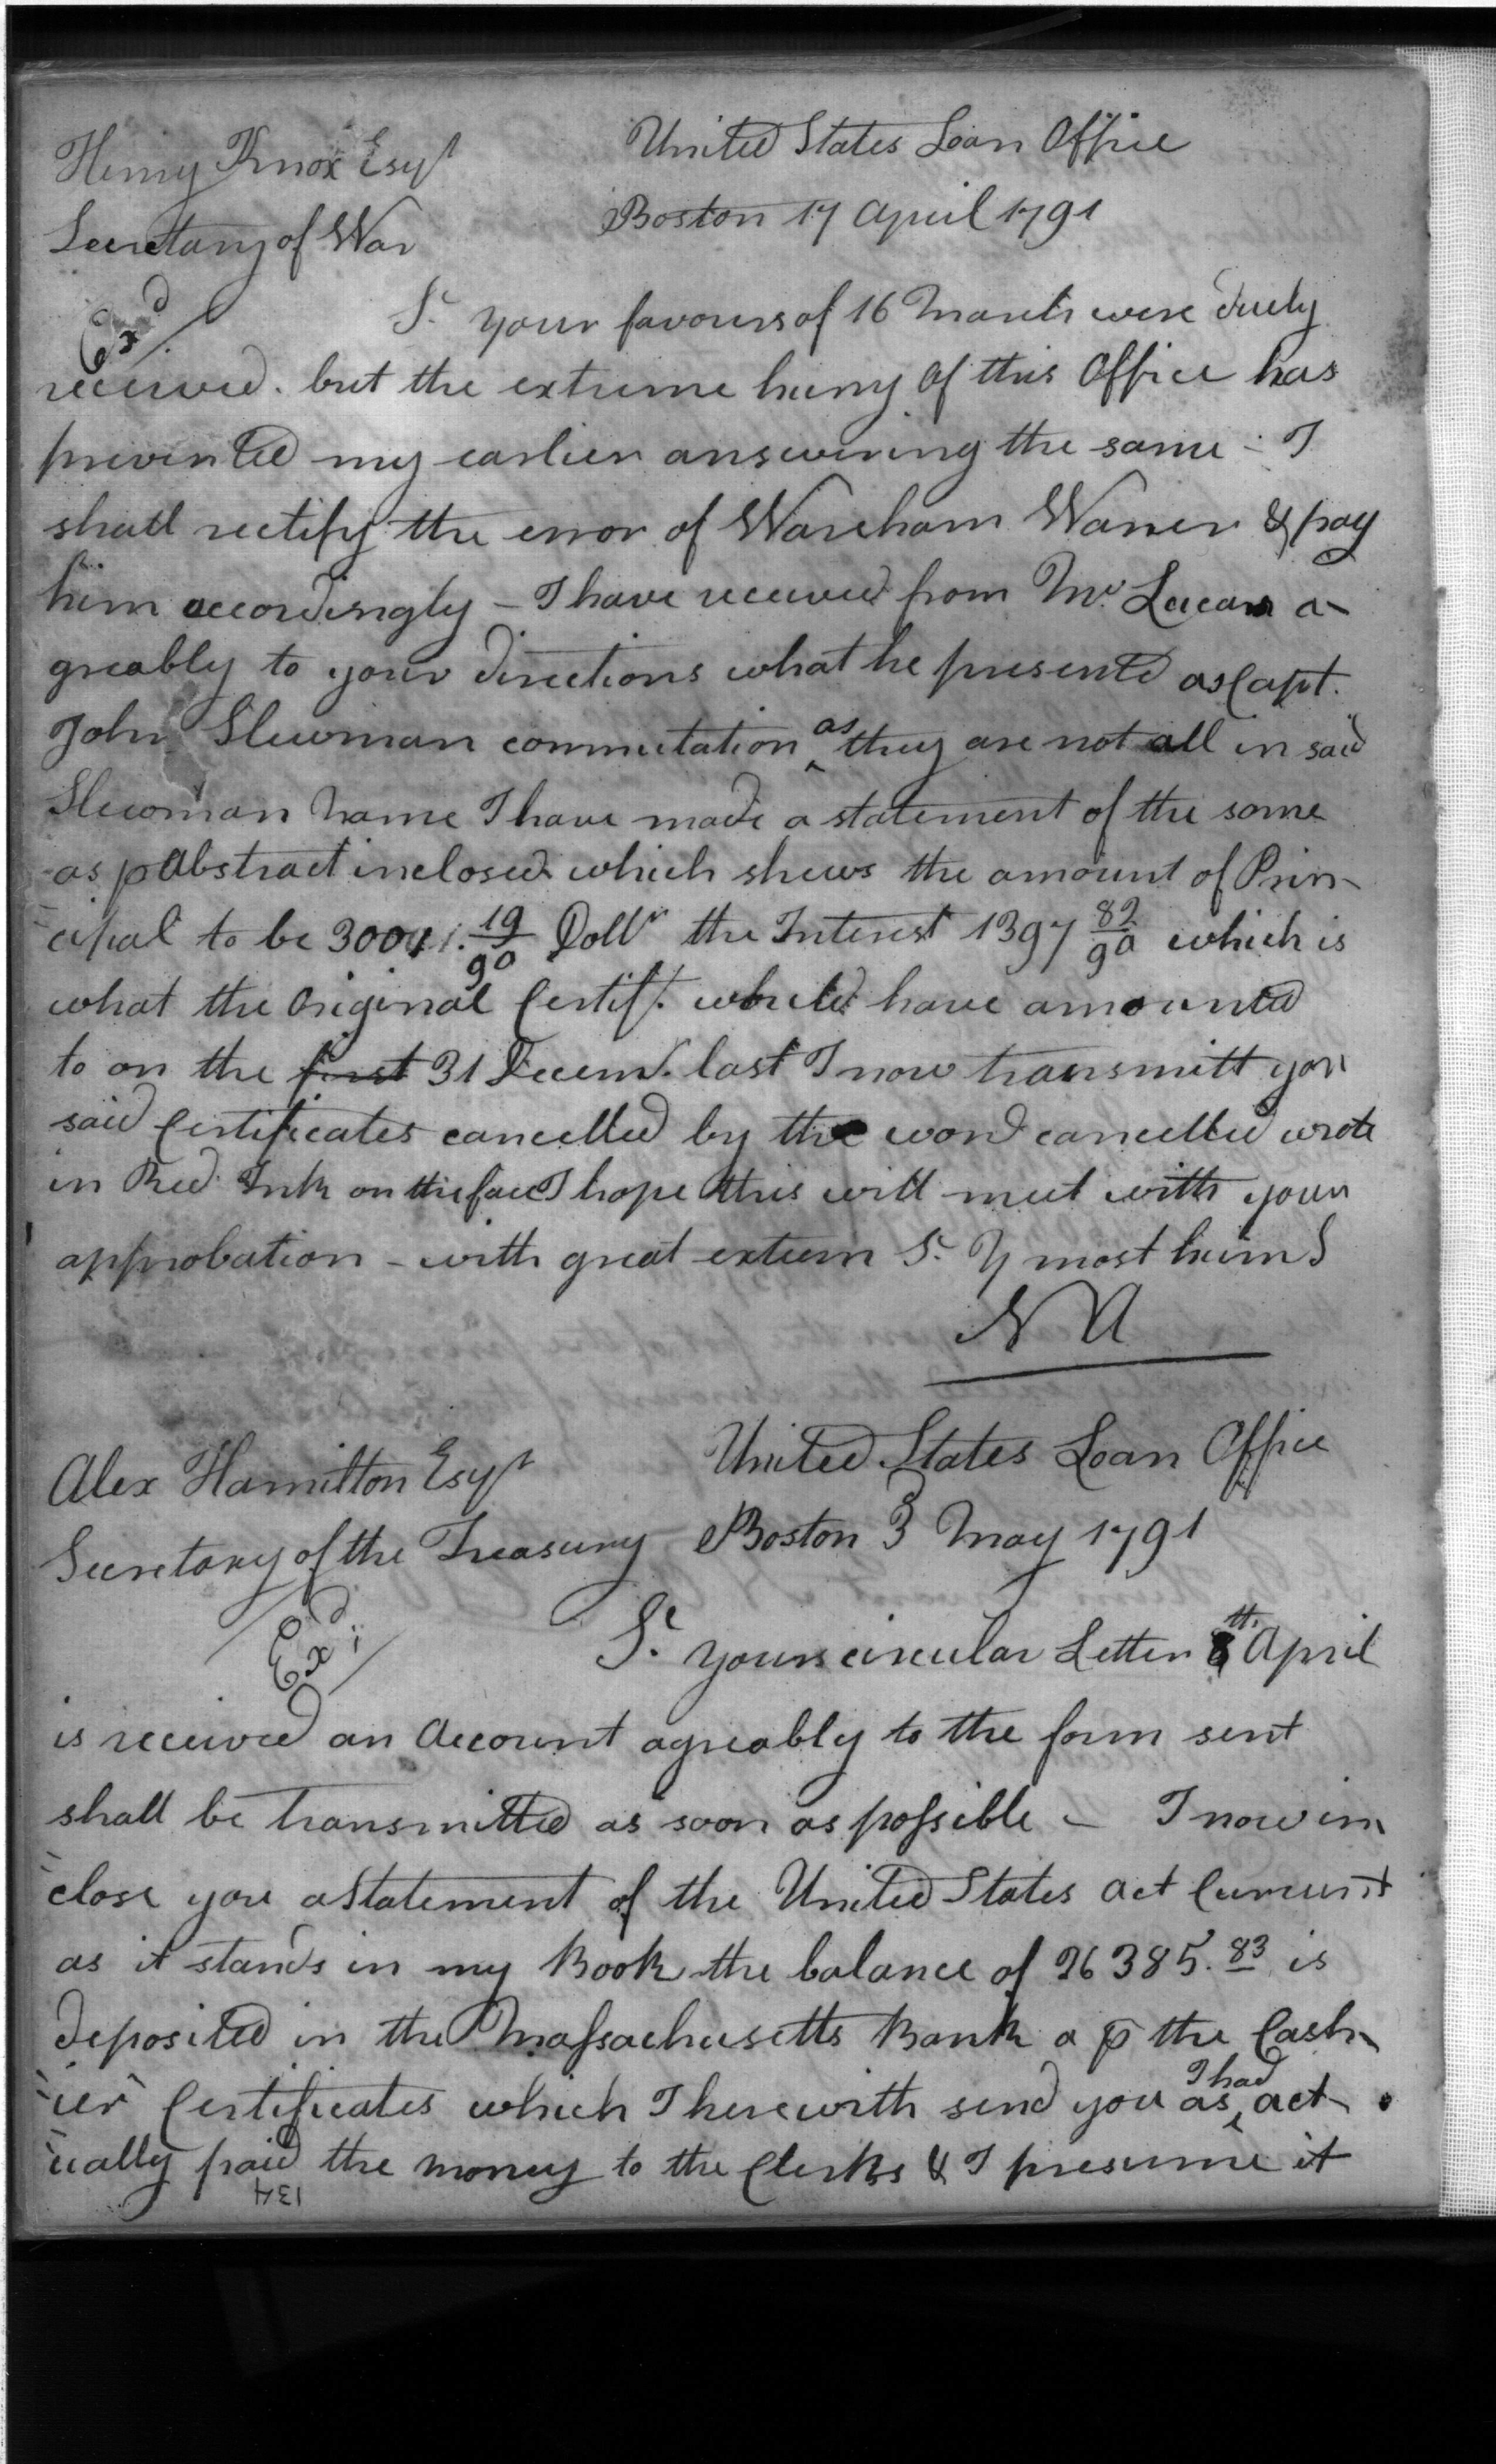 Henry Knox Esqr
United States Loan Office
Secretary of War
Boston 17 April 1791
Exd
Sr. your favours of 16 March were duely
received. but the extreme hurry of this Office has
prevented my earlier answering the same - I
shall rectify the error of Wareham Warner & pay
him accordingly - I have received from Mr. Lucas a-
greably to your directions what he presented as Capt.
John Slewman commutation as they are not all in said
Slewman name I have made a statement of the same
as p Abstract inclosed which shews the amount of Prin-
cipal to be 19/90 Dollr the Interest 1397 82/90 which is
what the Original Certift. would have amounted
to on the first 31 Decemr. last I now transmitt you
said Certificates cancelled by the word cancelled wrote
in Red Ink on the face I hope this will meet with your
approbation - with great esteem Sr. Y most hum S
N A
Alex Hamilton Esqr
United States Loan Office
Secretary of the Treasury
Boston 3 May 1791
Exd
Sr. your circular Letter 8th. April
is received an Account agreably to the form sent
shall be transmitted as soon as possible - I now in
close you a Statement of the United States act Currunt
as it stands in my Book the balance of 26385.83 is
deposited in the Massachusetts Bank a p the Cash-
ier Certificates which I herewith send you as I had act-
ually paid the money to the Clerks & I presume it
134